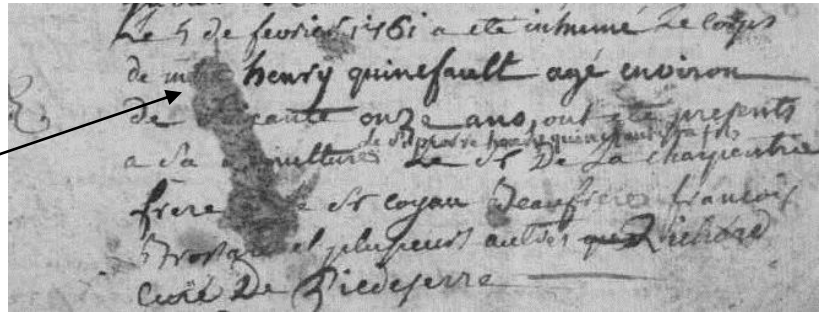 Le 5 de fevrier 1761 a eté inhumé Le corps
de henry quinefault agé environ
de onze ans, ont eté presents
Le Sr pierre henry quinefault
a Sa Le Sr De La charpentrie
frere Sr coyau Beaufrere francois
et plusieurs autres Richard
curé De Piedeferre